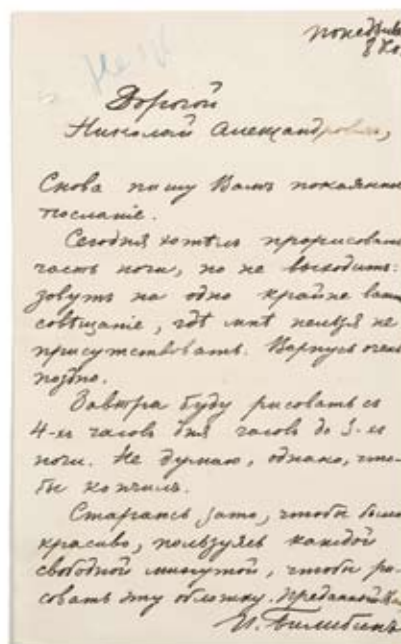 понедѣль
8 Но
Дорогой
Николай Александровичъ,
Снова пишу Вамъ покаянно
посланіе.
Сегодня хотѣлъ прорисовать
часть ночи, но не выходитъ:
зовутъ на одно крайне важн
совѣщаніе, гдѣ мнѣ нельзя не
присутствовать. Вернусь очень
поздно.
Завтра буду рисовать съ
4-хъ часовъ дня часовъ до 3-хъ
ночи. Не думаю, однако, что-
бы кончилъ.
Стараюсь зато, чтобы было
красиво, пользуясь каждой
свободной минутой, чтобы ри-
совать эту обложку. Преданный Ва
И. Билибинъ